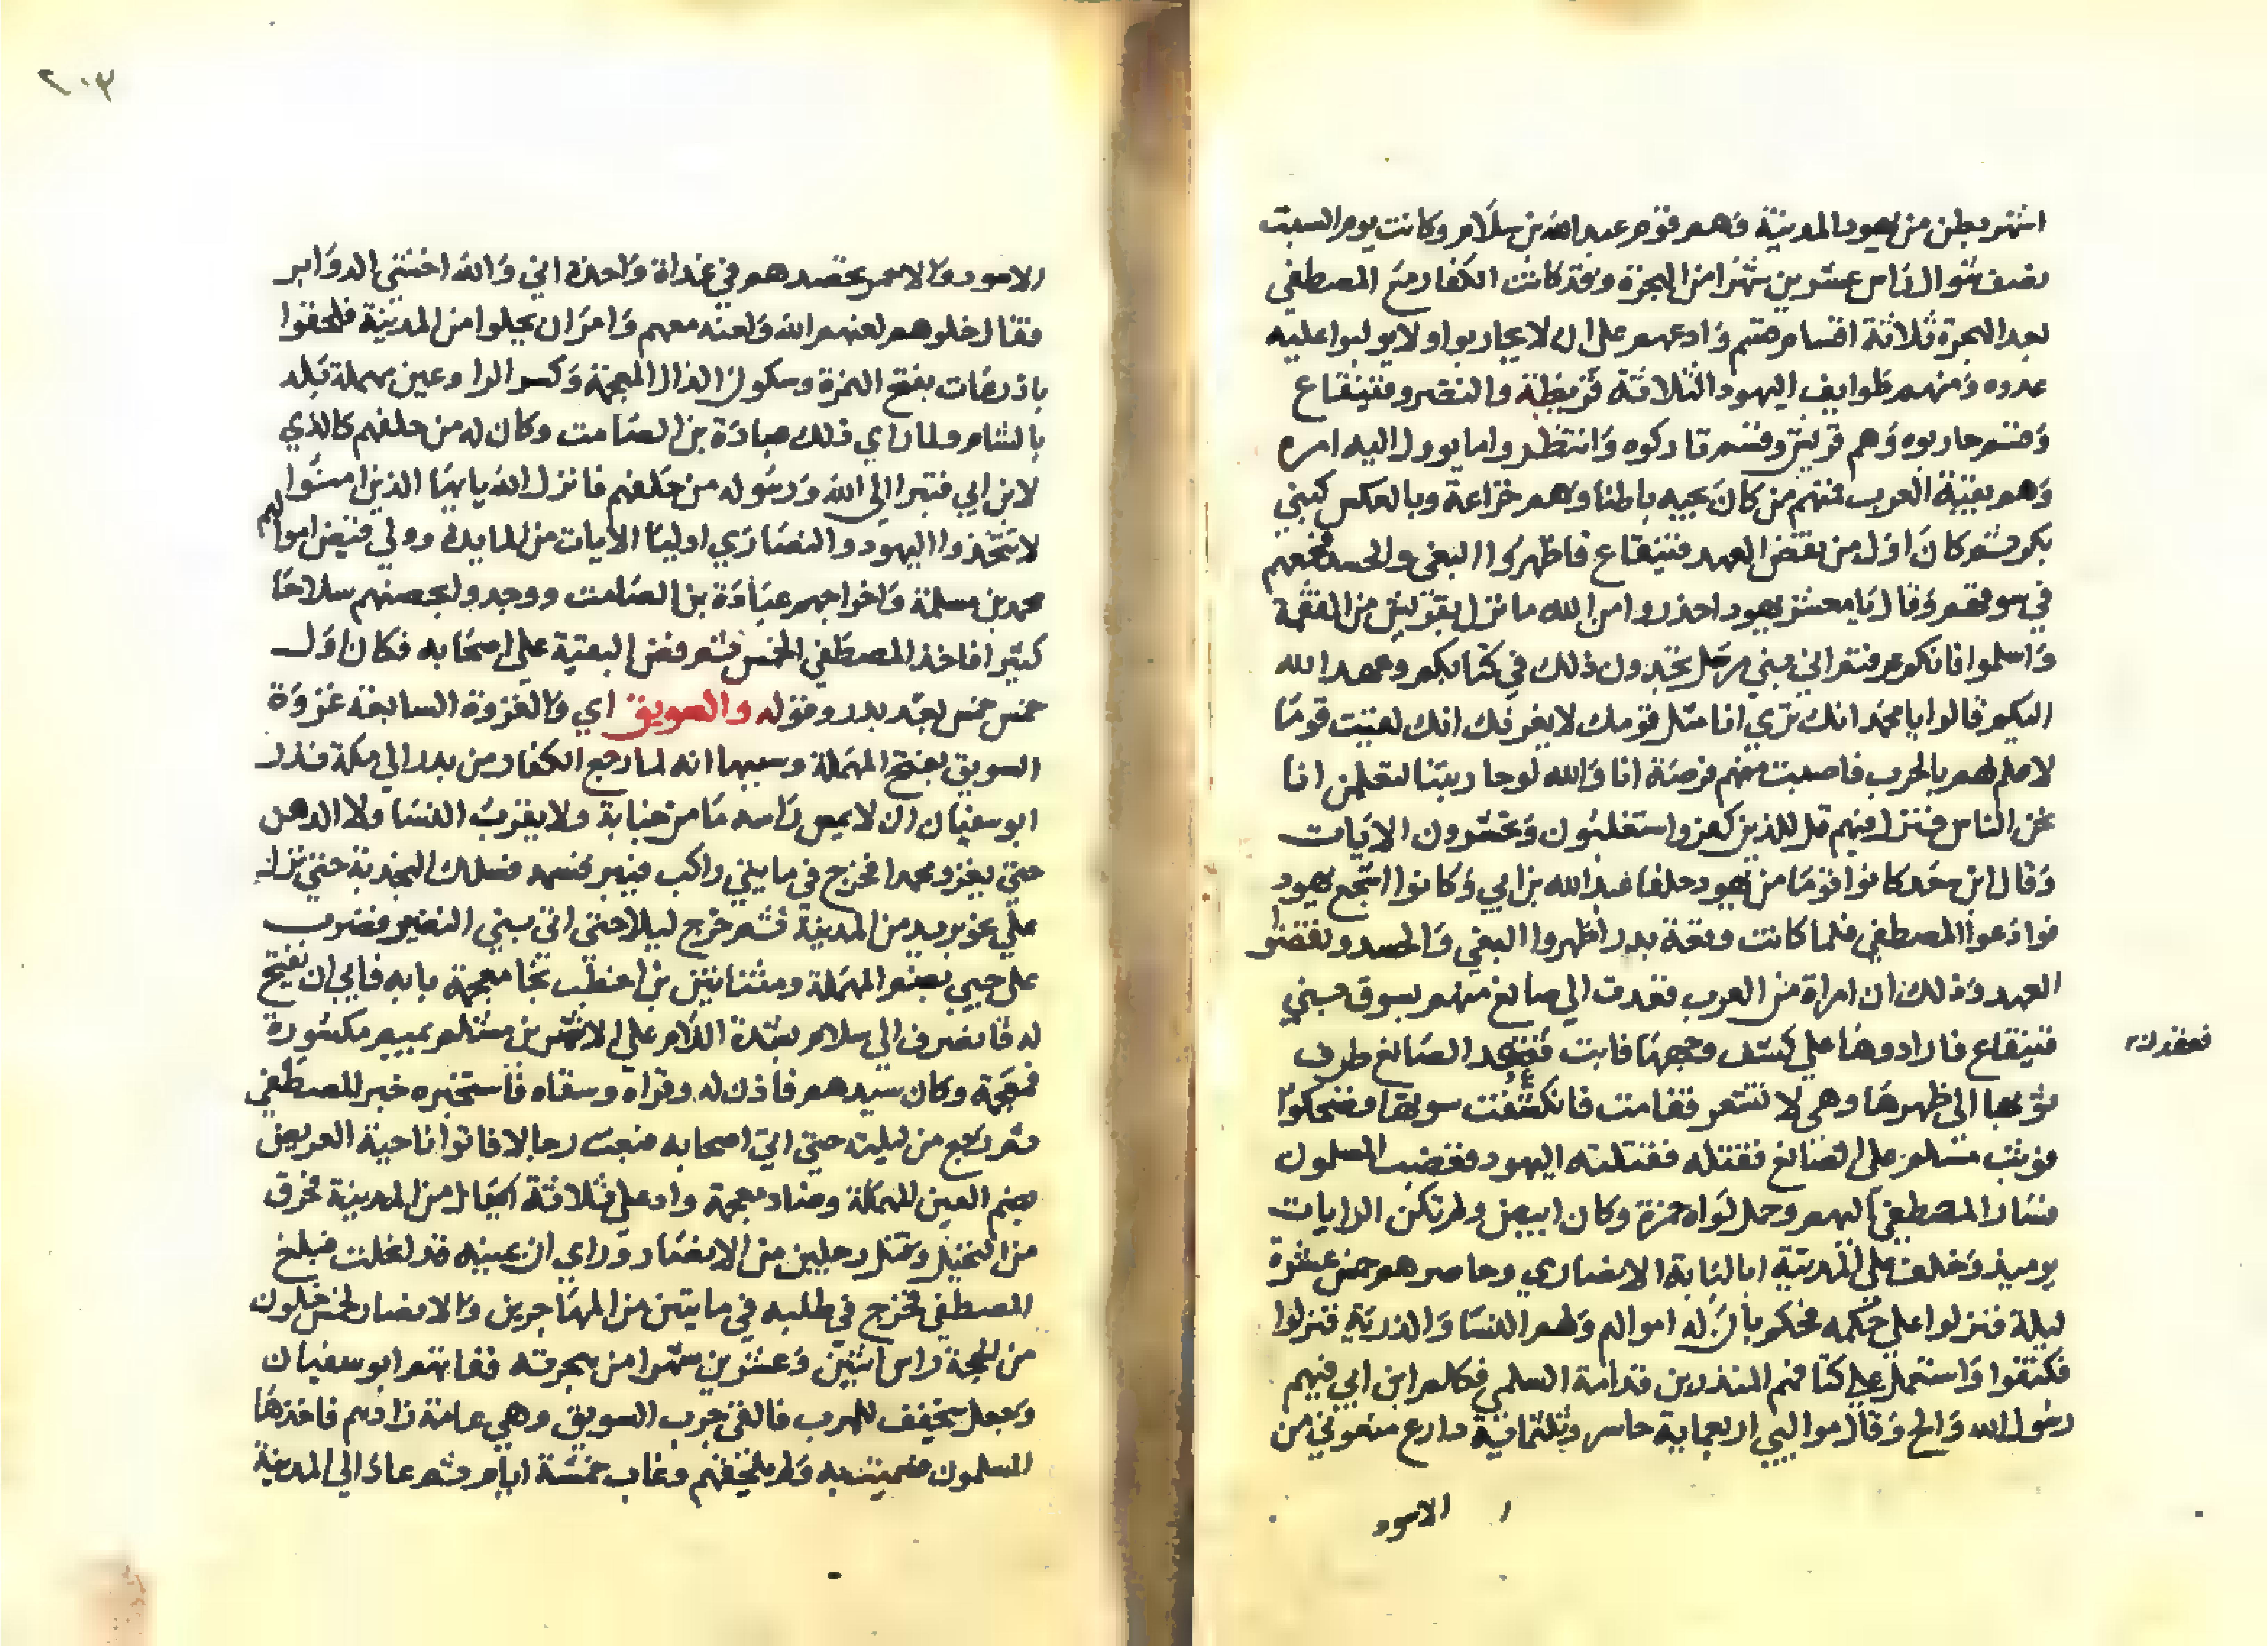 اشهر بطن من يهود المدينة وهم قوم عبد الله بن سلام وكانت يوم السبت
نصف شوال راس عشرين شهرا من الهجرة وقد كانت الكفار مع المصطفي
بعد الهجرة ثلاثة اقسام قسم وادعهم علي ان لا يحاربوا ولا يولبوا عليه
عدوه ومنهم طوايف اليهود الثلاثة قريظة والنضر وقينقاع
وقسم حاربوه وهم قريش وقسم تاركوه وانتظروا ما يوول اليه امره
وهم بقية العرب فمنهم من كان يحبه باطنا وهم خزاعة وبالعكس كبني
بكر ثم كان اول من نقض العهد قينقاع فاظهروا البغي والحسد فجمعهم
في سوقهم وقال يا معشر يهود احذروا من الله ما نزل بقريش من النقمة
واسلموا فانكم عرفتم اني نبي مرسل تجدون ذلك في كتابكم وعهد الله
اليكم قالوا يا محمد انك تري انا مثل قومك لا يغرنك انك لقيت قوما
لا علم لهم بالحرب فاصبت منهم فرصة انا والله لو حاربتنا لتعلمن انا
نحن الناس فنزل فيهم قل للذين كفروا ستغلبون وتحشرون الايات
وقال ابن سعد كانوا قوما من يهود حلفا عبد الله بن ابي وكانوا اشجع يهود
فوادعوا المصطفي فلما كانت وقعة بدر اظهروا البغي والحسد ونقضوا
العهد وذلك ان امراة من العرب قعدت الي صايغ منهم بسوق بني
قينقاع فارادوها علي كشف وجهها فابت فعمد الصايغ طرف
فعقدك
ثوبها الي ظهرها وهي لا تشعر فقامت فانكشفت سوتها فضحكوا
فوثب مسلم علي الصايغ فقتله فقتلته اليهود فغضب المسلمون
فسار المصطفي اليهم وحمل لواه حمزة وكان ابيض ولم تكن الرايات
يوميذ وخلف علي المدينة ابا لبابة الانصاري وحاصرهم خمس عشرة
ليلة فنزلوا علي حكمه فحكم بان له اموالهم ولهم النسا والذرية فنزلوا
فكتفوا واستعمل علي كتافهم المنذر بن قدامة السلمي فكلم ابن ابي فيهم
رسول الله والح وقال موالي اربعماية حاسر وثلثماية دارع منعوني من
الاسود
٢٠٣
الاسود والاحمر تحصدهم في غداة واحدة اني والله اخشي الدواير
فقال خلوهم لعنهم الله ولعنه معهم وامر ان يجلوا من المدينة فلحقوا
باذرعات بفتح الهمزة وسكون الذال المعجمة وكسر الرا وعين مهملة بلد
بالشام ولما راي ذلك عبادة بن الصامت وكان له من حلفهم كالذي
لابن ابي فتبرا الي الله ورسوله من حلفهم فانزل الله يايها الذين امنوا
لا تتخذوا اليهود والنصاري اوليا الايات من المايدة وولي قبض اموالهم
محمد بن مسلمة واخراجهم عبادة بن الصامت ووجدوا بحصنهم سلاحا
كثيرا فاخذ المصطفي الخمس ثم فض البقية علي اصحابه فكان اول
خمس خمس بعد بدر وقوله والسويق اي والغزوة السابعة غزوة
السويق بفتح المهملة وسببها انه لما رجع الكفار من بدر الي مكة نذر
ابو سفيان ان لا يمس راسه ما من جنابة ولا يقرب النسا ولا الدهن
حتي يغزو محمدا فخرج في مايتي راكب فيبر قسمه فسلك النجدية حتي نزل
علي نحو بريد من المدينة ثم خرج ليلا حتي اتي بني النضير فضرب
علي حيي بضم المهملة ومثناتين بن اخطب بخا معجمة بابه فابي ان يفتح
له فانصرف الي سلام بشدة اللام علي الاشهر بن مشكم بميم مكسورة
فمعجمة وكان سيدهم فاذن له وقراه وسقاه فاستخبره خبر المصطفي
ثم رجع من ليلته حتي اتي اصحابه فبعث رجالا فاتوا ناحية العريض
بضم العين المهملة وضاد معجمة واد علي ثلاثة اميال من المدينة فحرق
من النخيل وقتل رجلين من الانصار وراي ان يمينه قد انحلت فبلغ
المصطفي فخرج في طلبه في مايتين من المهاجرين والانصار لخمس خلون
من الحجة راس اثنين وعشرين شهرا من هجرته ففاتهم ابو سفيان
وجعل يتخفف للهرب فالقي جرب السويق وهي عامة زادهم فاخذها
المسلمون فسميت به ولم يلحقهم وغاب خمسة ايام ثم عاد الي المدينة